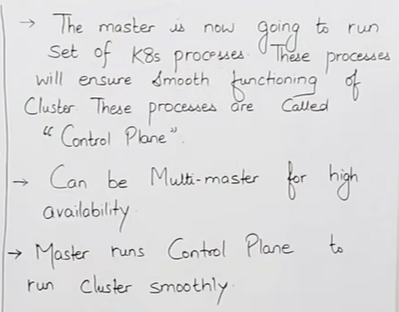 → The master is now going to run
set of K8s processes. These processes
will ensure smooth functioning of
Cluster. These processes are called
"Control Plane".
→ Can be Multi-master for high
availability.
→ Master runs Control Plane to
run cluster smoothly.